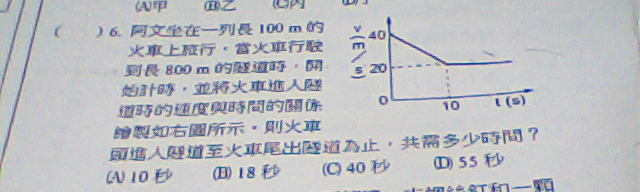 (A)甲 (B)乙 (C)丙 (D)丁
( ) 6. 阿文坐在一列長 100 m 的
火車上旅行,當火車行駛
到長 800 m 的隧道時,開
始計時,並將火車進入隧
道時的速度與時間的關係
繪製如右圖所示,則火車
頭進入隧道至火車尾出隧道為止,共需多少時間?
(A) 10 秒 (B) 18 秒 (C) 40 秒 (D) 55 秒
v(m/s)
40
20
0
10
t(s)